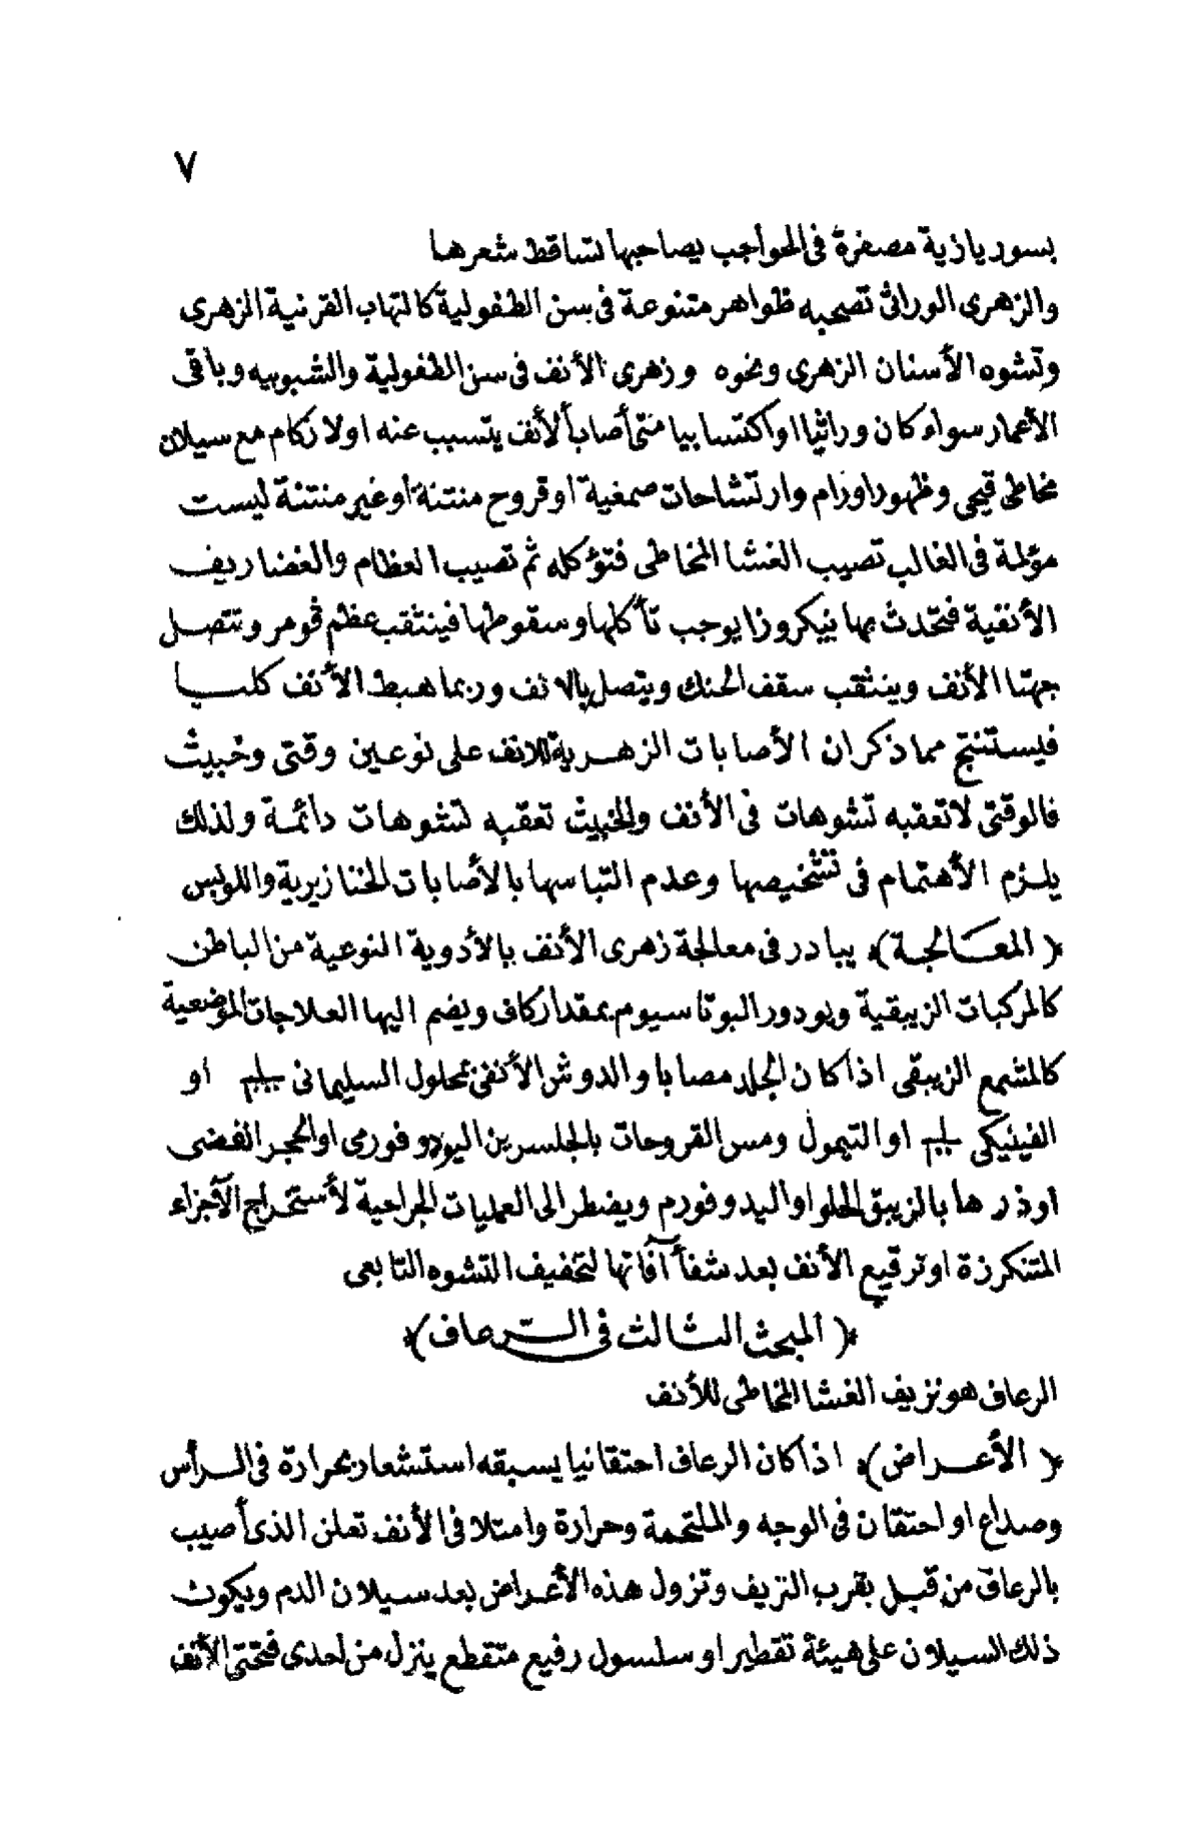 ٧
بسوريازية مصفرة فى الحواجب يصاحبها تساقط شعرها
والزهرى الوراثى تصحبه ظواهر متنوعة فى سن الطفولية كالتهاب القرنية الزهرى
وتشوه الأسنان الزهرى ونحوه وزهرى الأنف فى سن الطفولية والشبوبيه وباقى
الأعمار سواء كان وراثيا او اكتسابيا متى أصاب الأنف يتسبب عنه اولا زكام مع سيلان
مخاطى قيحى وظهور اورام وارتشاحات صمغية او قروح منتنة او غير منتنة ليست
مؤلمة فى الغالب تصيب الغشا المخاطى فتؤكله ثم تصيب العظام والغضاريف
الأنفية فتحدث بها نيكروزا يوجب تأكلها وسقوطها فينثقب عظم ڤومر وتتصل
جهتا الأنف وينثقب سقف الحنك ويتصل بالانف وربما هبط الأنف كليا
فيستنتج مما ذكر ان الأصابات الزهرية للانف على نوعين وقتى وخبيث
فالوقتى لا تعقبه تشوهات فى الأنف والخبيث تعقبه تشوهات دائمة ولذلك
يلزم الأهتمام فى تشخيصها وعدم التباسها بالأصابات الخنازيرية واللوبس
﴿المعالجة﴾ يبادر فى معالجة زهرى الأنف بالأدوية النوعية من الباطن
كالمركبات الزيبقية ويودور البوتاسيوم بمقدار كاف ويضم اليها العلاجات الموضعية
كالمشمع الزيبقى اذا كان الجلد مصابا والدوش الأنفى بمحلول السليمانى او
الفينيكى او التيمول ومس القروحات بالجلسرين اليودو فورمى او الحجر الفضى
او ذرها بالزيبق الحلو او اليدوفورم ويضطر الى العمليات الجراحية لأستخراج الأجزاء
المتنكرزة او ترقيع الأنف بعد شفأ آفاتها لتخفيف التشوه التابعى
﴿المبحث الثالث فى الرعاف﴾
الرعاف هو نزيف الغشا المخاطى للأنف
﴿الأعراض﴾ اذا كان الرعاف احتقانيا يسبقه استشعار بحرارة فى الرأس
وصداع او احتقان فى الوجه والملتحمة وحرارة وامتلا فى الأنف تعلن الذى أصيب
بالرعاف من قبل بقرب النزيف وتزول هذه الأعراض بعد سيلان الدم ويكون
ذلك السيلان على هيئة تقطير او سلسول رفيع متقطع ينزل من احدى فتحتى الأنف